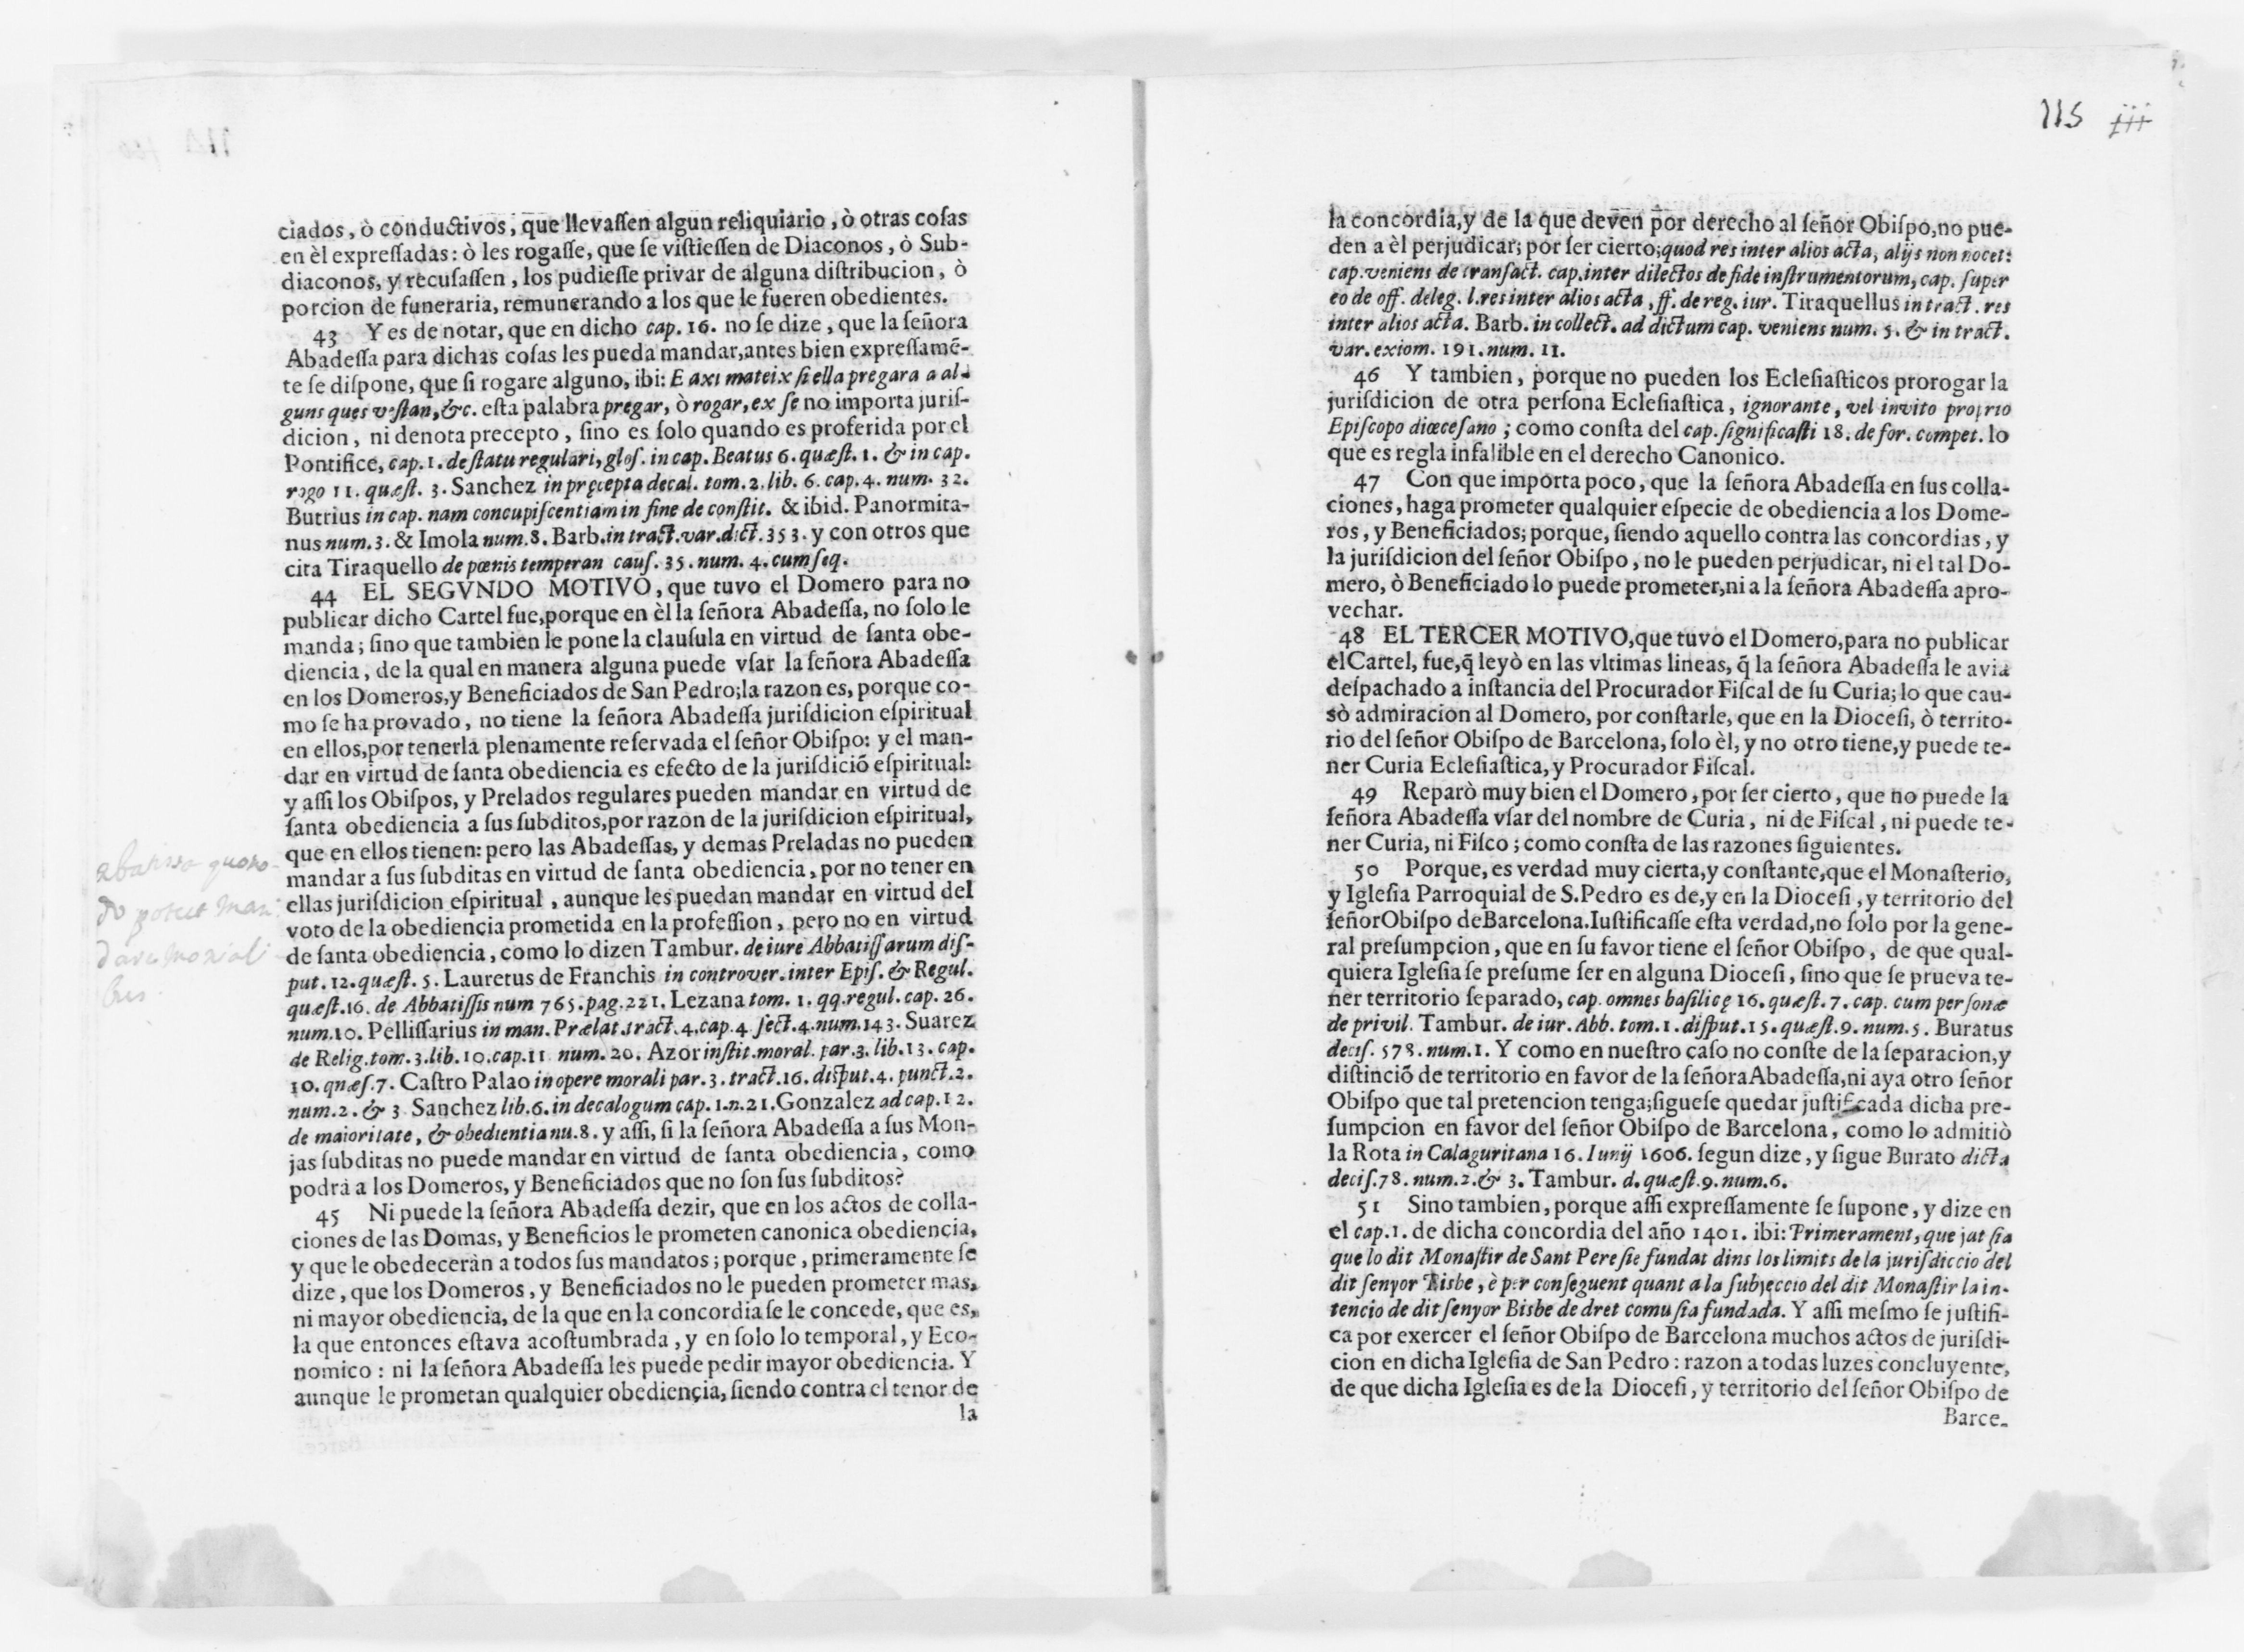 ciados, ò conductivos, que llevaſſen algun reliquiario, ò otras coſas
en èl expreſſadas: ò les rogaſſe, que ſe viſtieſſen de Diaconos, ò Sub-
diaconos, y recuſaſſen, los pudieſſe privar de alguna diſtribucion, ò
porcion de funeraria, remunerando a los que le fueren obedientes.
43 Y es de notar, que en dicho cap. 16. no ſe dize, que la ſeñora
Abadeſſa para dichas coſas les pueda mandar, antes bien expreſſamẽ-
te ſe diſpone, que ſi rogare alguno, ibi: E axi mateix ſi ella pregara a al-
guns ques veſtan, &c. eſta palabra pregar, ò rogar, ex ſe no importa juriſ-
dicion, ni denota precepto, ſino es ſolo quando es proferida por el
Pontifice, cap. 1. de ſtatu regulari, gloſ. in cap. Beatus 6. quæſt. 1. & in cap.
rogo 11. quæſt. 3. Sanchez in pręcepta decal. tom. 2. lib. 6. cap. 4. num. 32.
Butrius in cap. nam concupiſcentiam in fine de conſtit. & ibid. Panormita-
nus num. 3. & Imola num. 8. Barb. in tract. var. dict. 353. y con otros que
cita Tiraquello de pœnis temperan cauſ. 35. num. 4. cum ſeq.
44 EL SEGVNDO MOTIVO, que tuvo el Domero para no
publicar dicho Cartel fue, porque en èl la ſeñora Abadeſſa, no ſolo le
manda; ſino que tambien le pone la clauſula en virtud de ſanta obe-
diencia, de la qual en manera alguna puede vſar la ſeñora Abadeſſa
en los Domeros, y Beneficiados de San Pedro; la razon es, porque co-
mo ſe ha provado, no tiene la ſeñora Abadeſſa juriſdicion eſpiritual
en ellos, por tenerla plenamente reſervada el ſeñor Obiſpo: y el man-
dar en virtud de ſanta obediencia es efecto de la juriſdiciõ eſpiritual:
y aſſi los Obiſpos, y Prelados regulares pueden mandar en virtud de
ſanta obediencia a ſus ſubditos, por razon de la juriſdicion eſpiritual,
que en ellos tienen: pero las Abadeſſas, y demas Preladas no pueden
mandar a ſus ſubditas en virtud de ſanta obediencia, por no tener en
ellas juriſdicion eſpiritual, aunque les puedan mandar en virtud del
voto de la obediencia prometida en la profeſſion, pero no en virtud
de ſanta obediencia, como lo dizen Tambur. de iure Abbatiſſarum diſ-
put. 12. quæſt. 5. Lauretus de Franchis in controver. inter Epiſ. & Regul.
quæſt. 16. de Abbatiſſis num 765. pag. 221. Lezana tom. 1. qq. regul. cap. 26.
num. 10. Pelliſſarius in man. Prælat. tract. 4. cap. 4 ſect. 4. num. 143. Suarez
de Relig. tom. 3. lib. 10. cap. 11 num. 20. Azor inſtit. moral. par. 3. lib. 13. cap.
10. quæſ. 7. Caſtro Palao in opere morali par. 3. tract. 16. diſput. 4. punct. 2.
num. 2. & 3 Sanchez lib. 6. in decalogum cap. 1. n. 21. Gonzalez ad cap. 12.
de maioritate, & obedientia nu. 8. y aſſi, ſi la ſeñora Abadeſſa a ſus Mon-
jas ſubditas no puede mandar en virtud de ſanta obediencia, como
podrà a los Domeros, y Beneficiados que no ſon ſus ſubditos?
45 Ni puede la ſeñora Abadeſſa dezir, que en los actos de colla-
ciones de las Domas, y Beneficios le prometen canonica obediencia,
y que le obedeceràn a todos ſus mandatos; porque, primeramente ſe
dize, que los Domeros, y Beneficiados no le pueden prometer mas,
ni mayor obediencia, de la que en la concordia ſe le concede, que es,
la que entonces eſtava acoſtumbrada, y en ſolo lo temporal, y Eco-
nomico: ni la ſeñora Abadeſſa les puede pedir mayor obediencia. Y
aunque le prometan qualquier obediencia, ſiendo contra el tenor de
la
abatissa quomo-
do potest man-
dare moniali
bus.
115 iii
la concordia, y de la que deven por derecho al ſeñor Obiſpo, no pue-
den a èl perjudicar; por ſer cierto; quod res inter alios acta, alijs non nocet:
cap. veniens de tranſact. cap. inter dilectos de fide inſtrumentorum, cap. ſuper
eo de off. deleg. l. res inter alios acta, ff. de reg. iur. Tiraquellus in tract. res
inter alios acta. Barb. in collect. ad dictum cap. veniens num. 5. & in tract.
var. exiom. 191. num. 11.
46 Y tambien, porque no pueden los Ecleſiaſticos prorogar la
juriſdicion de otra perſona Ecleſiaſtica, ignorante, vel invito proprio
Epiſcopo diœceſano; como conſta del cap. ſignificaſti 18. de for. compet. lo
que es regla infalible en el derecho Canonico.
47 Con que importa poco, que la ſeñora Abadeſſa en ſus colla-
ciones, haga prometer qualquier eſpecie de obediencia a los Dome-
ros, y Beneficiados; porque, ſiendo aquello contra las concordias, y
la juriſdicion del ſeñor Obiſpo, no le pueden perjudicar, ni el tal Do-
mero, ò Beneficiado lo puede prometer, ni a la ſeñora Abadeſſa apro-
vechar.
48 EL TERCER MOTIVO, que tuvo el Domero, para no publicar
el Cartel, fue, q̃ leyò en las vltimas lineas, q̃ la ſeñora Abadeſſa le avia
deſpachado a inſtancia del Procurador Fiſcal de ſu Curia; lo que cau-
sò admiracion al Domero, por conſtarle, que en la Dioceſi, ò territo-
rio del ſeñor Obiſpo de Barcelona, ſolo èl, y no otro tiene, y puede te-
ner Curia Ecleſiaſtica, y Procurador Fiſcal.
49 Reparò muy bien el Domero, por ſer cierto, que no puede la
ſeñora Abadeſſa vſar del nombre de Curia, ni de Fiſcal, ni puede te-
ner Curia, ni Fiſco; como conſta de las razones ſiguientes.
50 Porque, es verdad muy cierta, y conſtante, que el Monaſterio,
y Igleſia Parroquial de S. Pedro es de, y en la Dioceſi, y territorio del
ſeñor Obiſpo de Barcelona. Iuſtificaſſe eſta verdad, no ſolo por la gene-
ral preſumpcion, que en ſu favor tiene el ſeñor Obiſpo, de que qual-
quiera Igleſia ſe preſume ſer en alguna Dioceſi, ſino que ſe prueva te-
ner territorio ſeparado, cap. omnes baſilicę 16. quæſt. 7. cap. cum perſonæ
de privil. Tambur. de iur. Abb. tom. 1. diſput. 15. quæſt. 9. num. 5. Buratus
deciſ. 578. num. 1. Y como en nueſtro caſo no conſte de la ſeparacion, y
diſtinciõ de territorio en favor de la ſeñora Abadeſſa, ni aya otro ſeñor
Obiſpo que tal pretencion tenga; ſigueſe quedar juſtificada dicha pre-
ſumpcion en favor del ſeñor Obiſpo de Barcelona, como lo admitiò
la Rota in Calaguritana 16. Iunij 1606. ſegun dize, y ſigue Burato dicta
deciſ. 78. num. 2. & 3. Tambur. d. quæſt. 9. num. 6.
51 Sino tambien, porque aſſi expreſſamente ſe ſupone, y dize en
el cap. 1. de dicha concordia del año 1401. ibi: Primerament, que jat ſia
que lo dit Monaſtir de Sant Pere ſie fundat dins los limits de la juriſdiccio del
dit ſenyor Bisbe, è per conſeguent quant a la ſubjeccio del dit Monaſtir la in-
tencio de dit ſenyor Bisbe de dret comu ſia fundada. Y aſſi meſmo ſe juſtifi-
ca por exercer el ſeñor Obiſpo de Barcelona muchos actos de juriſdi-
cion en dicha Igleſia de San Pedro: razon a todas luzes concluyente,
de que dicha Igleſia es de la Dioceſi, y territorio del ſeñor Obiſpo de
Barce-